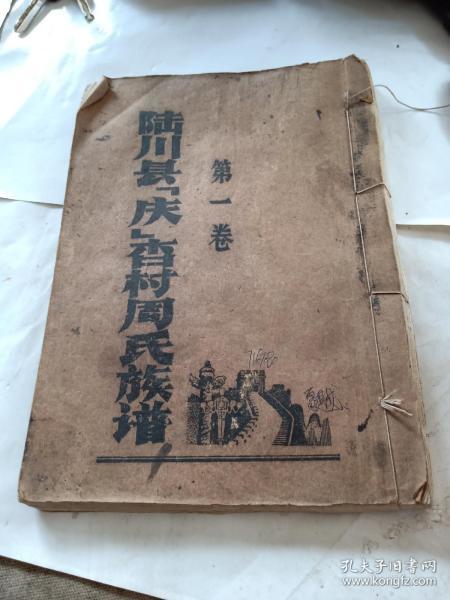 陆川县「庆」杏村周氏族谱
第一卷
孔夫子旧书网
www.kongfz.com